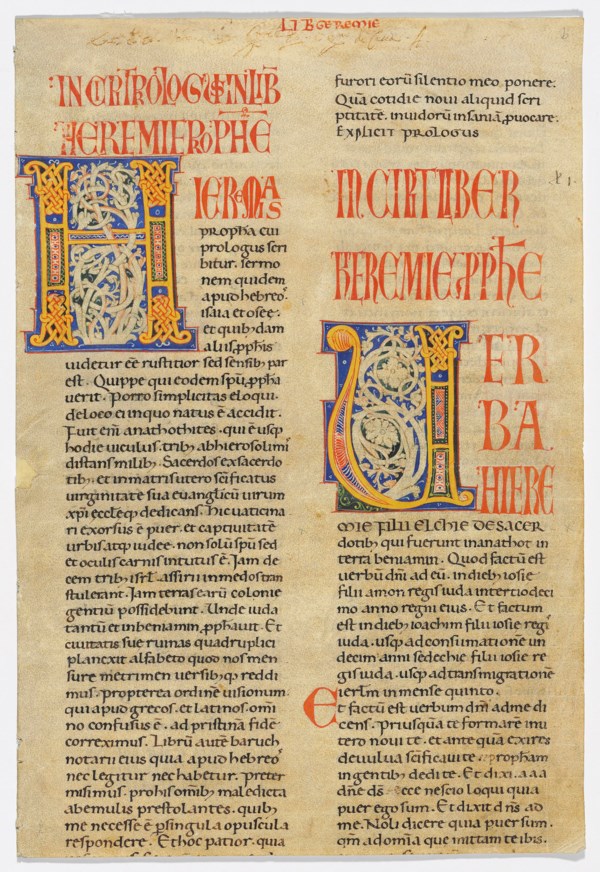 LIB GEREMIE
INCIPIT PROLOGUS IN LIB
HIEREMIE PROPHE
HIEREMIAS
propha cui
prologus scri
bitur. sermo
nem quidem
apud hebreos.
isaia et osee.
et quibꝰdam
aliis ꝓphis
uidetur eē rusticior sed sensibꝰ par
est. Quippe qui eodem spū ꝓpha
uerit. Porro simplicitas eloqui.
de loco ei in quo natus ē accidit.
Fuit eī anathothites. qui ē usqꝫ
hodie uiculus. tribꝰ ab hierosolimis
distans milibꝰ. Sacerdos ex sacerdo
tibꝰ. et in matris utero scīficatus
uirginitate sua euanglicū uirum
xpi eccłeꝗ dedicans. Hic uaticina
ri exorsus ē puer. et captiuitatē
urbis atqꝫ iudee. non solū spū sed
et oculis carnis intuitus ē. Jam de
cem tribꝰ isrł. assirii in medos tran
stulerant. Jam terras earū colonie
gentiū possidebunt. Unde iuda
tantū et in beniamin. ꝓphauit. Et
ciuitatis sue ruinas quadruplici
planexit alfabeto quod nos men
sure metri in en uersibꝰꝗ reddi
mus. Propterea ordinē uisionum
qui apud grecos. et latinos. omi
no confusus ē. ad pristinā fidē
correximus. Librū autē baruch
notarii eius quia apud hebreos
nec legitur nec habetur. preter
misimus. pro his omībꝰ maledicta
ab emulis prestolantes. quibꝰ
me necesse ē ꝑ singula opuscula
respondere. Et hoc patior. quia
furori eorū silentio meo ponere.
Quā cotidie noui aliquid scri
ptitatē. inuidorū insaniā ꝓuocare.
EXPLICIT PROLOGUS
INCIPIT LIBER
HIEREMIE PPHE
VER
BA
HIERE
MIE FILII ELCHIE DE SACER
dotibꝰ qui fuerunt in anathot in
terra beniamin. Quod factū est
uerbū dnī ad eū. in diebꝰ iosie
filii amon regis iuda in tertio deci
mo anno regni eius. Et factum
est in diebꝰ ioachim filii iosie regis
iuda. usqꝫ ad consumationē un
decim anni sedechie filii iosie re
gis iuda. usqꝫ ad transmigrationē
ierłm in mense quinto.
Et factū est uerbum dnī ad me di
cens. Priusquā te formarē in u
tero noui te. et ante quā exires
de uulua scificaui te. propham
in gentibꝰ dedi te. Et dixi. a a a
dne ds ecce nescio loqui quia
puer ego sum. Et dixit dns ad
me. Noli dicere quia puer sum.
qm ad omīa que mittam te ibis.